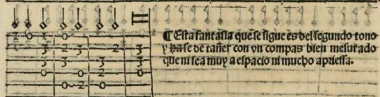 ¶ Esta fantasia que se sigue es del segundo tono
y hase de tañer con vn compas bien mesurado
que ni sea muy a espacio ni mucho apriessa.